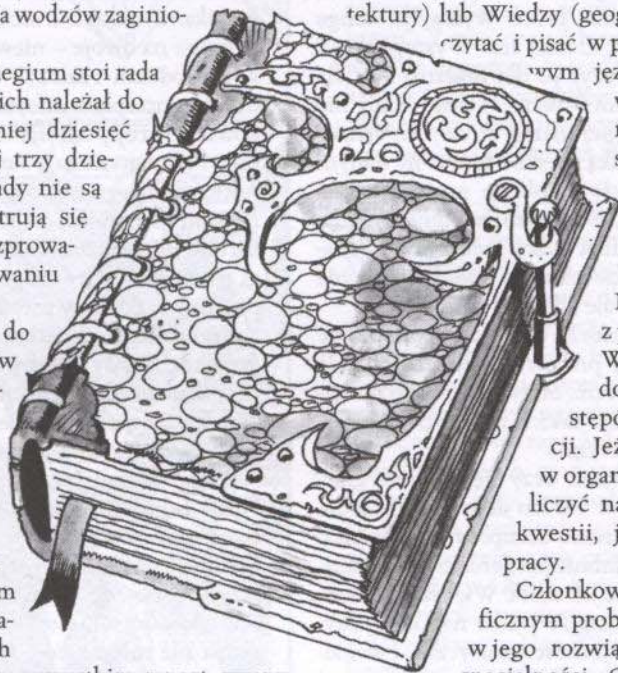 a wodzów zaginio-
egium stoi rada
ich należał do
niej dziesięć
j trzy dzie-
ady nie są
trują się
zprowa-
waniu
do
w
m
a-
h
tektury) lub Wiedzy (geog
zytać i pisać w p
wym jęz
z
W
do
stępo
cji. Jeż
w organ
liczyć na
kwestii, j
pracy.
Członkow
ficznym prob
w jego rozwią